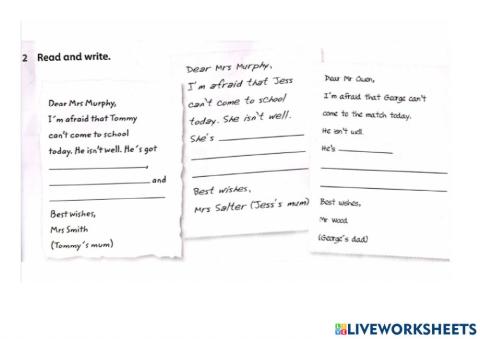 2 Read and write.
Dear Mrs Murphy,
I'm afraid that Tommy
can't come to school
today. He isn't well. He's got
,
and
Best wishes,
Mrs Smith
(Tommy's mum)
Dear Mrs Murphy,
I'm afraid that Jess
can't come to school
today. She isn't well.
She's
Best wishes,
Mrs Salter (Jess's mum)
Dear Mr Owen,
I'm afraid that George can't
come to the match today.
He isn't well.
He's
Best wishes,
Mr Wood
(George's dad)
LIVEWORKSHEETS